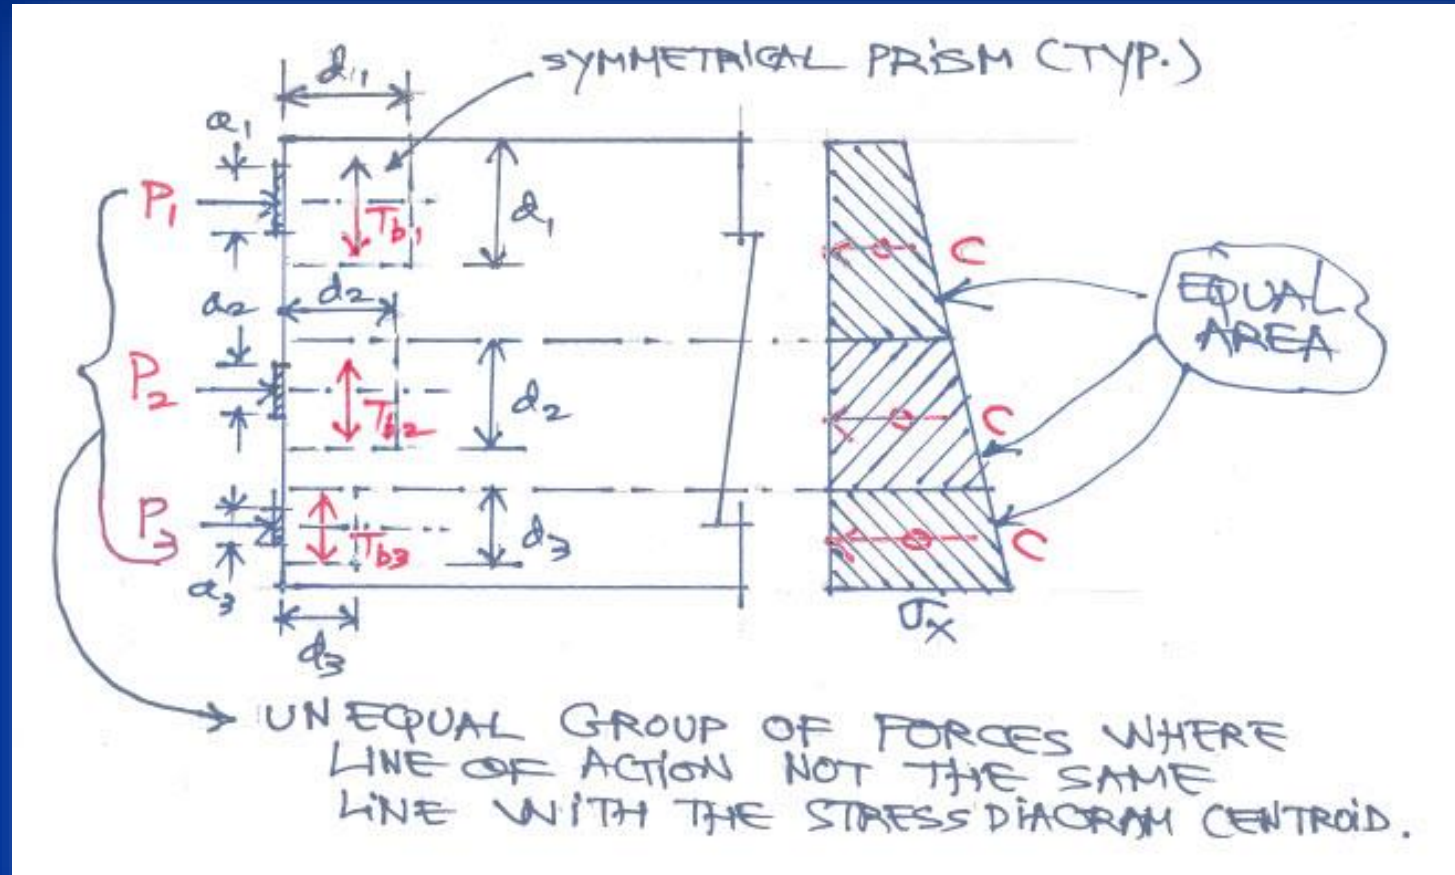 d1
SYMMETRICAL PRISM (TYP.)
a1
P1
Tb1
d1
C
a2
d2
EQUAL
AREA
P2
Tb2
d2
C
P3
Tb3
d3
C
a3
d3
σx
UNEQUAL GROUP OF FORCES WHERE
LINE OF ACTION NOT THE SAME
LINE WITH THE STRESS DIAGRAM CENTROID.